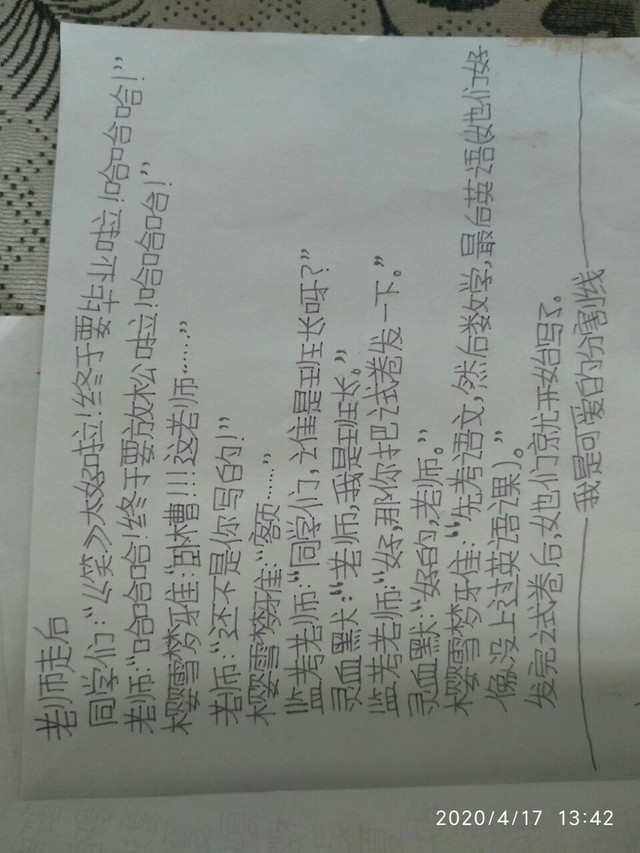 老师走后
同学们:“《笑》太好啦!终于要毕业啦!哈哈哈哈!”
老师:“哈哈哈哈!终于要放松啦!哈哈哈哈!”
樱雪梦雅:“卧槽!!!这老师……”
老师:“还不是你写的!”
樱雪梦雅:“额……”
监考老师:“同学们,谁是班长呀?”
灵血默:“老师,我是班长。”
监考老师:“好,那你把试卷发一下。”
灵血默:“好的,老师。”
樱雪梦雅:“先考语文,然后数学,最后英语(她们好
像没上过英语课)。”
发完试卷后,她们就开始写了。
我是可爱的分割线
2020/4/17 13:42